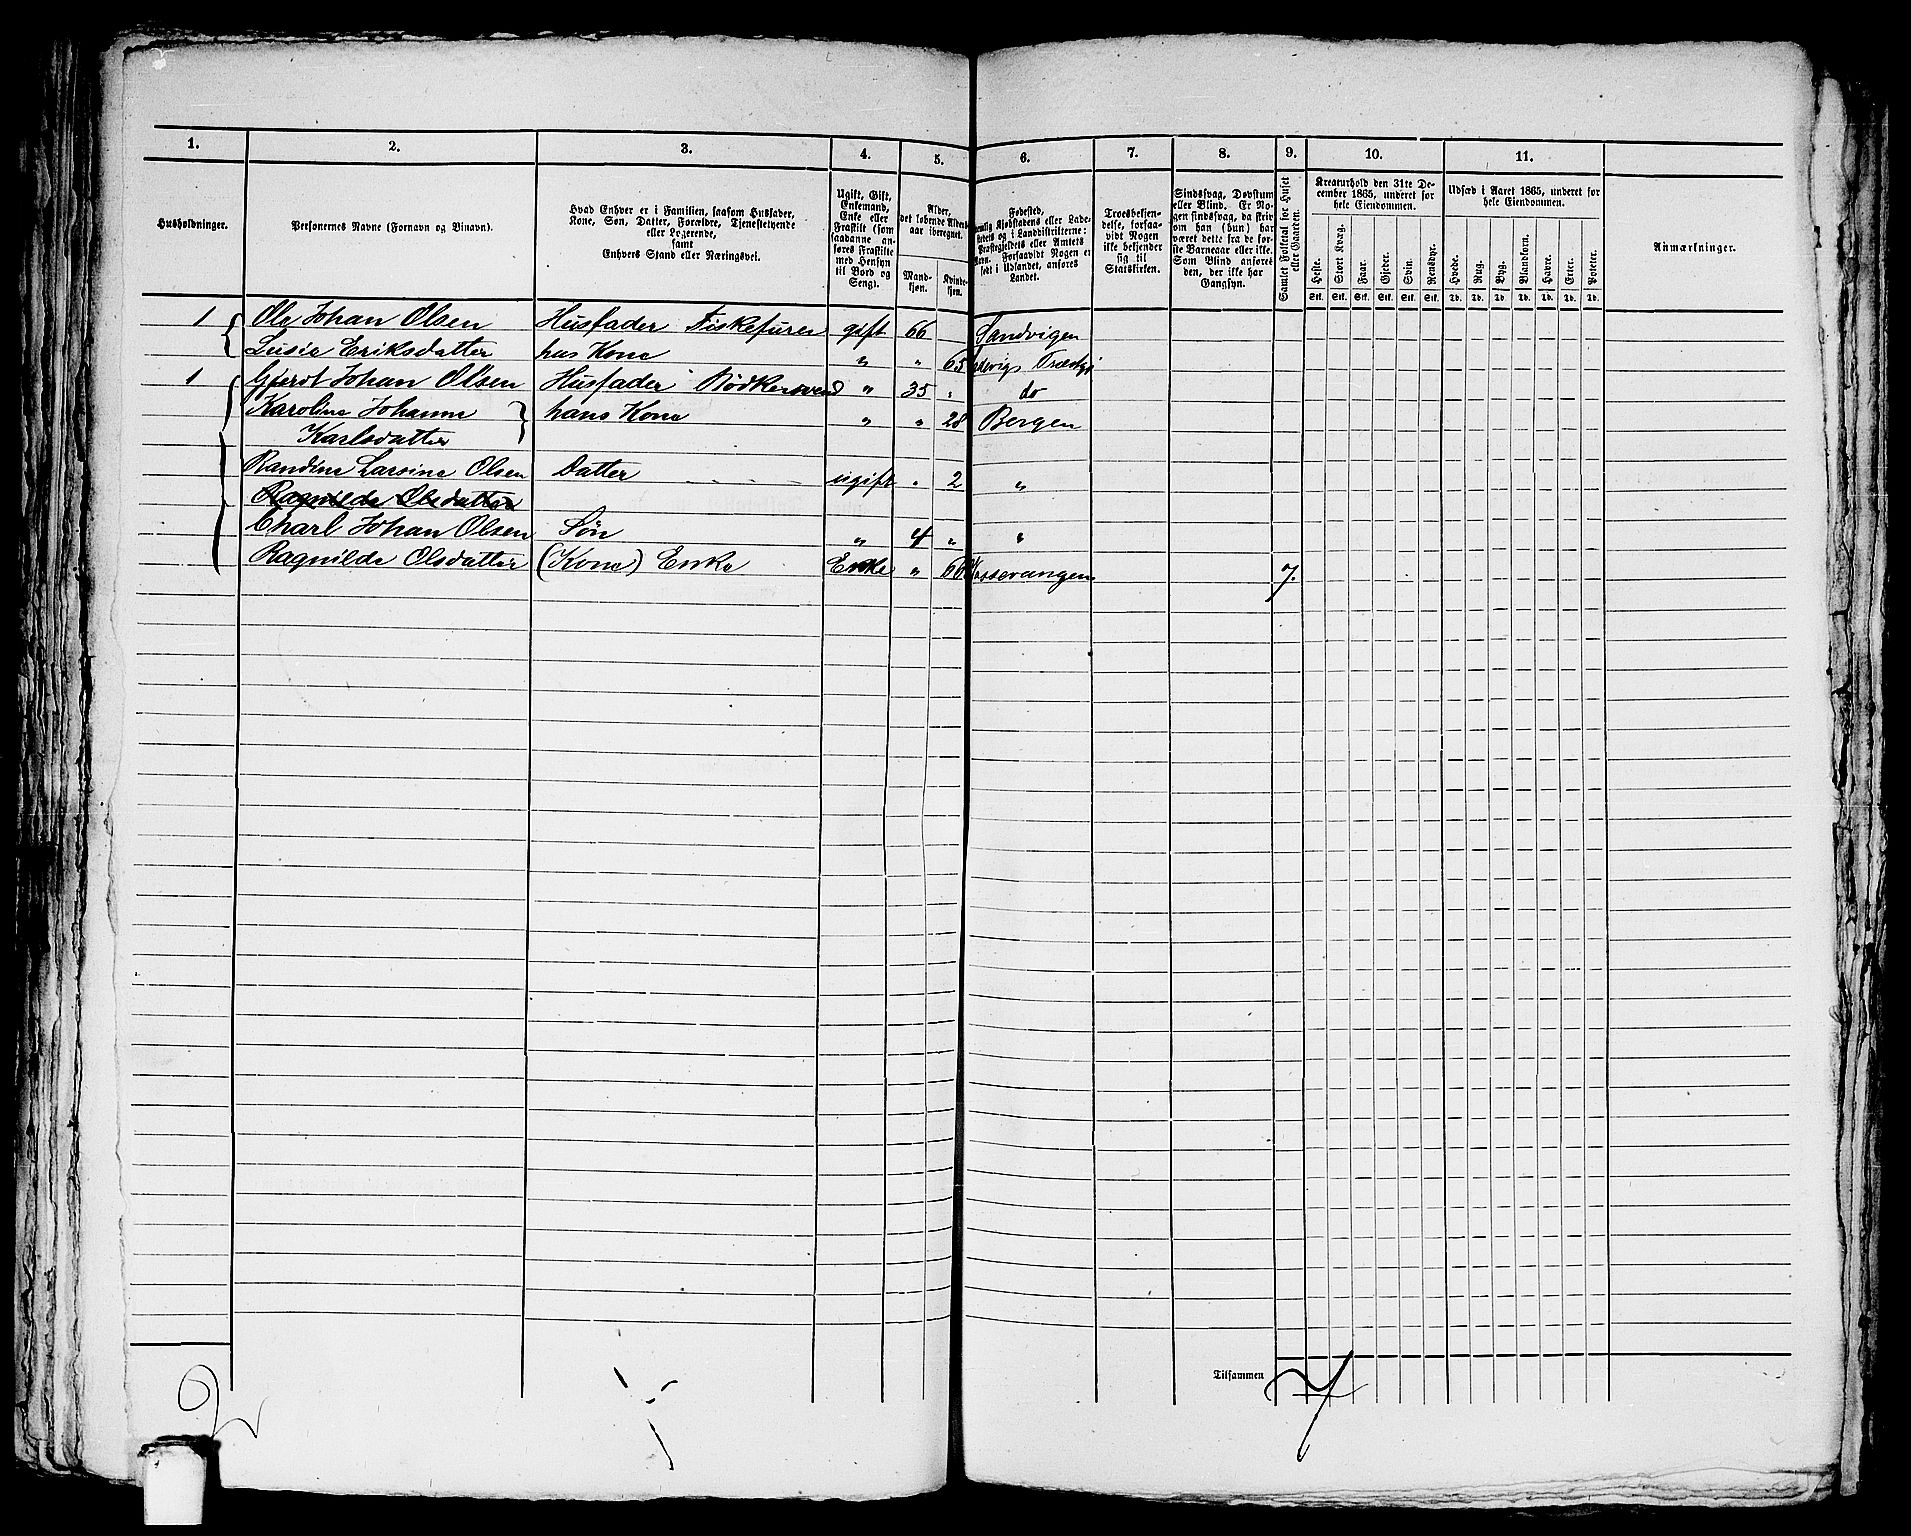 1. 2. 3. 4. 5. 6. 7. 8. 9. 10. 11.
Husholdninger.
Personernes Navne (Fornavn og Tilnavn).
Hvad Enhver er i Familien, saasom Husfader,
Kone, Søn, Datter, Forældre, Tjenestetyende
eller Logerende,
samt
Enhvers Stand eller Næringsvei.
Ugift, Gift,
Enkemand,
Enke eller
Fraskilt (som
saadanne an-
føres Fraskilte
med Hensyn
til Bord og
Seng).
Alder,
det løbende Alders-
aar iberegnet.
Mand-
kjøn.
Kvinde-
kjøn.
Fødested,
Landet.
Troesbekjen-
delse, forsaa-
vidt Nogen
ikke bekjender
sig til
Statskirken.
Sindssvag, Døvstum
eller Blind. Er No-
gen sindssvag, da skriv
om han (hun) har
været dette fra de før-
ste Barneaar eller ikke.
Som Blind anføres
den, der ikke har
Gangsyn.
Samlet Folketal for Huset
eller Gaarden.
Kreaturhold den 31te De-
cember 1865, underet for
hele Eiendommen.
Heste. Stort Kvæg. Faar. Gjeder. Svin. Rensdyr.
Stk. Stk. Stk. Stk. Stk. Stk.
Udsæd i Aaret 1865, underet for
hele Eiendommen.
Hvede. Rug. Byg. Blandkorn. Havre. Erter. Poteter.
Td. Td. Td. Td. Td. Td. Td.
Anmærkninger.
1 Ole Johan Olsen Husfader Fiskefurer gift 66 Sandvigen
Lusie Eriksdatter hus Kone " " 65
1 Gjerdt Johan Olsen Husfader Bødkersvend " 35 " do
Karoline Johanne hans Kone " " 28 Bergen
Karlsdatter
Randine Larsine Olsen Datter ugift " 2 "
Ragnilde Olsdatter
Charl Johan Olsen Søn " 4 " "
Ragnilde Olsdatter (Kone) Enke Enke " 66 Vossevangen 7.
Tilsammen 7
2